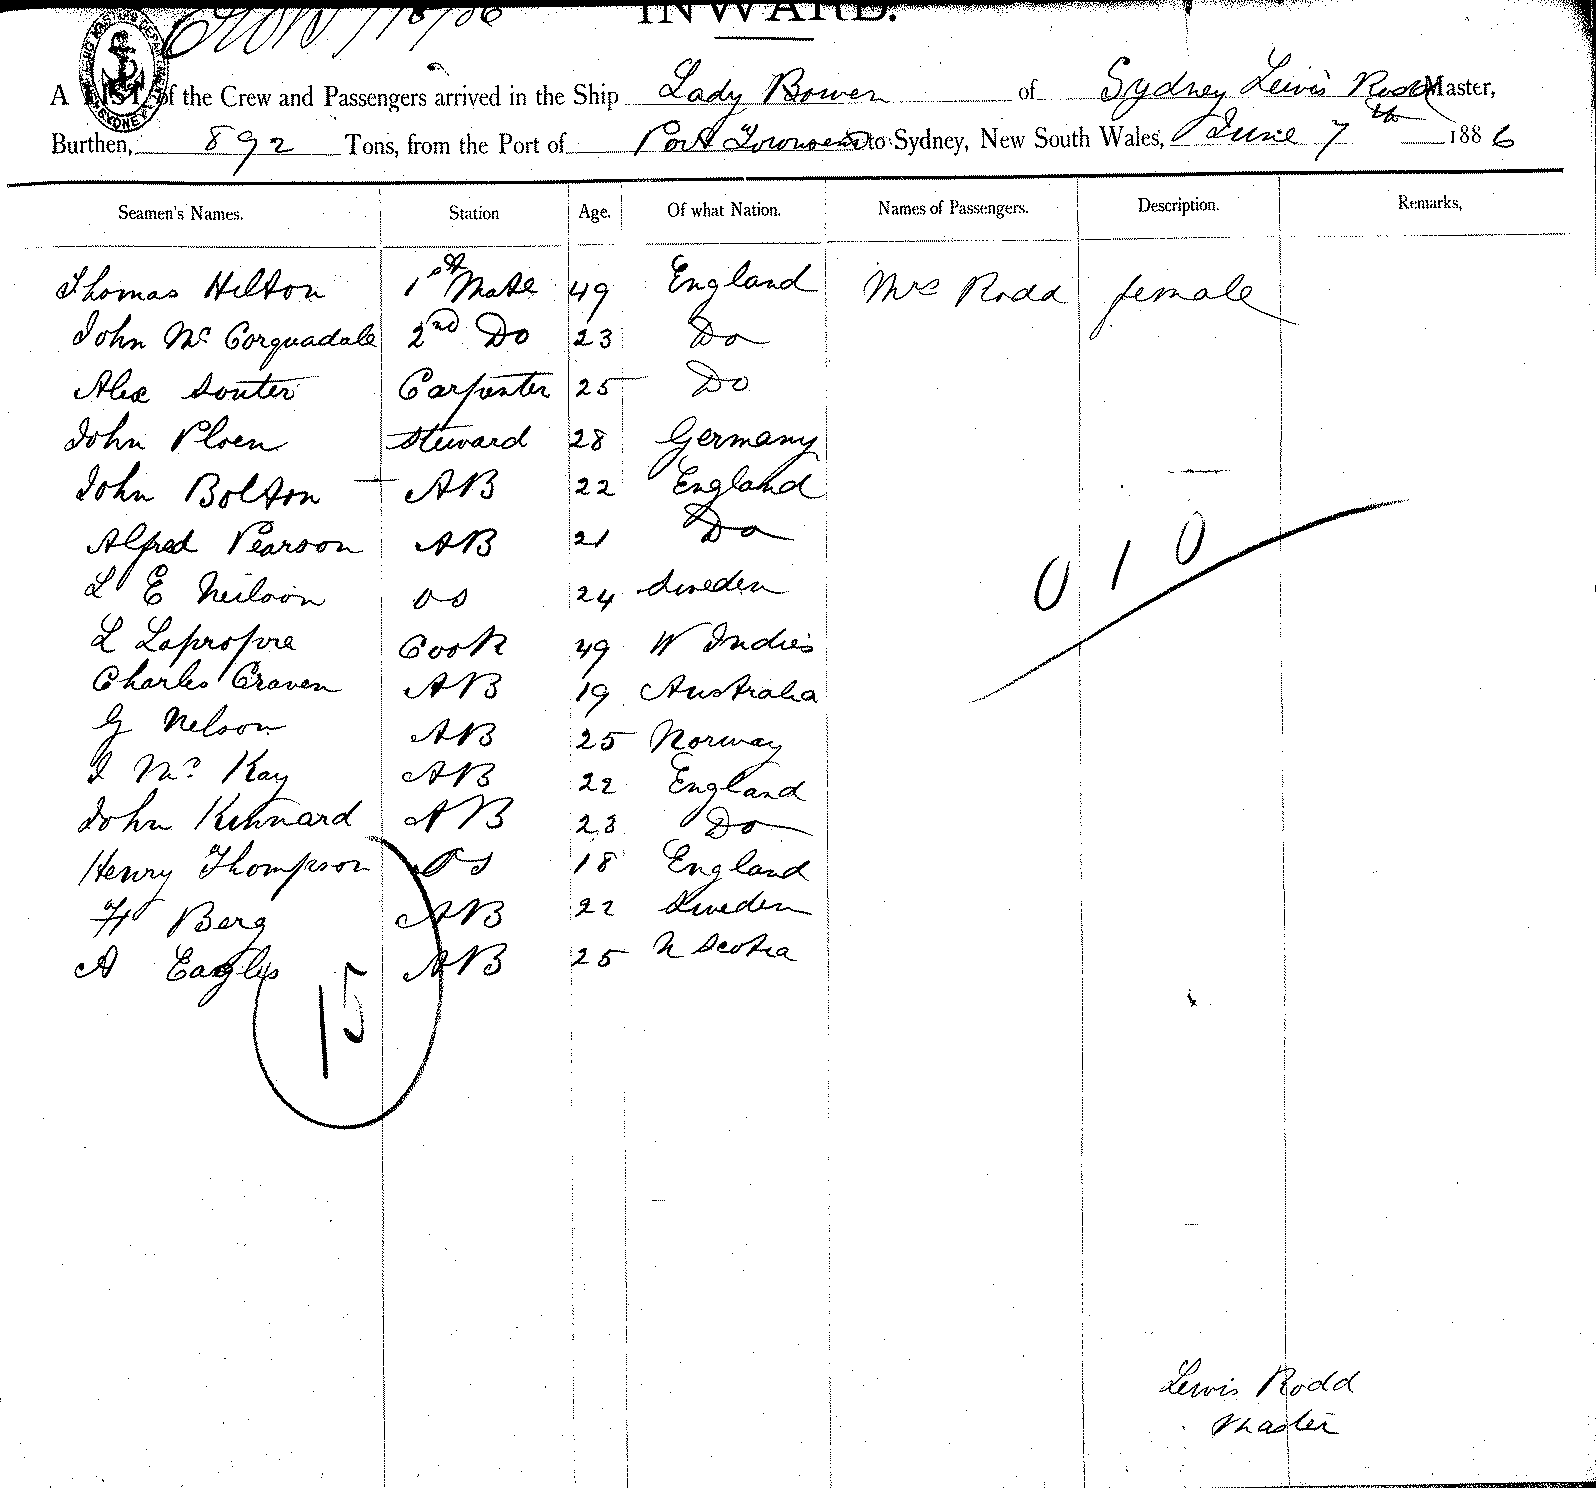 INWARD.
A LIST of the Crew and Passengers arrived in the Ship Lady Bowen of Sydney Lewis Rodd Master,
Burthen, 892 Tons, from the Port of Port Townsend to Sydney, New South Wales, June 7th 1886
Seamen's Names. Station Age. Of what Nation. Names of Passengers. Description. Remarks,
Thomas Hilton 1st Mate 49 England Mrs Rodd female
John Mc Corquadale 2nd Do 23 Do
Alex Souter Carpenter 25 Do
John Ploen Steward 28 Germany
John Bolton AB 22 England
Alfred Pearson AB 21 Do
L E Neilson OS 24 Sweden
L Lapropre Cook 49 W Indies
Charles Craven AB 19 Australia
G Nelson AB 25 Norway
J Mc Kay AB 22 England
John Kennard AB 23 Do
Henry Thompson OS 18 England
H Berg AB 22 Sweden
A Eagles AB 25 N Scotia
0 1 0
15
Lewis Rodd
Master